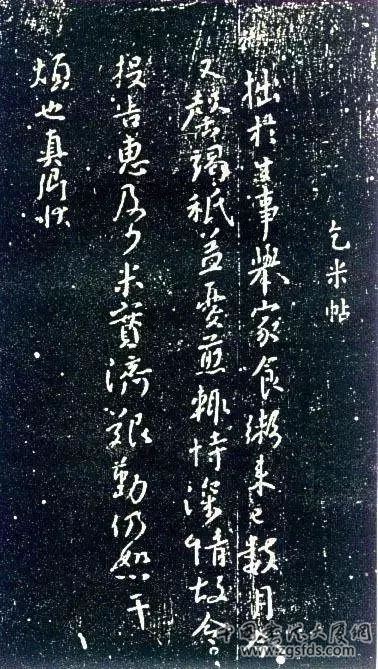 乞米帖
拙於生事舉家食粥來已數月今
又罄竭祗益憂煎輒恃深情故令
投告惠及少米實濟艱勤仍恕干
煩也真卿狀
www.zgsfds.com